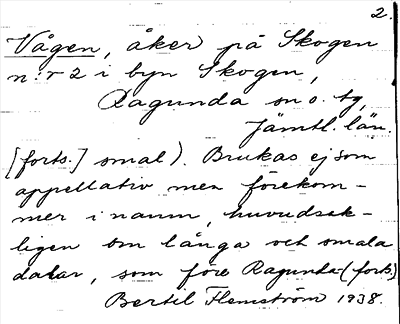 2.
Vågen, åker på Skogen
n:r 2 i byn Skogen,
Ragunda sn o. tg,
Jämtl. län.
[forts.] smal). Brukas ej som
appellativ men förekom-
mer i namn, huvudsak-
ligen om långa och smala
dalar, som före Ragunda-(forts)
Bertil Flemström 1938.